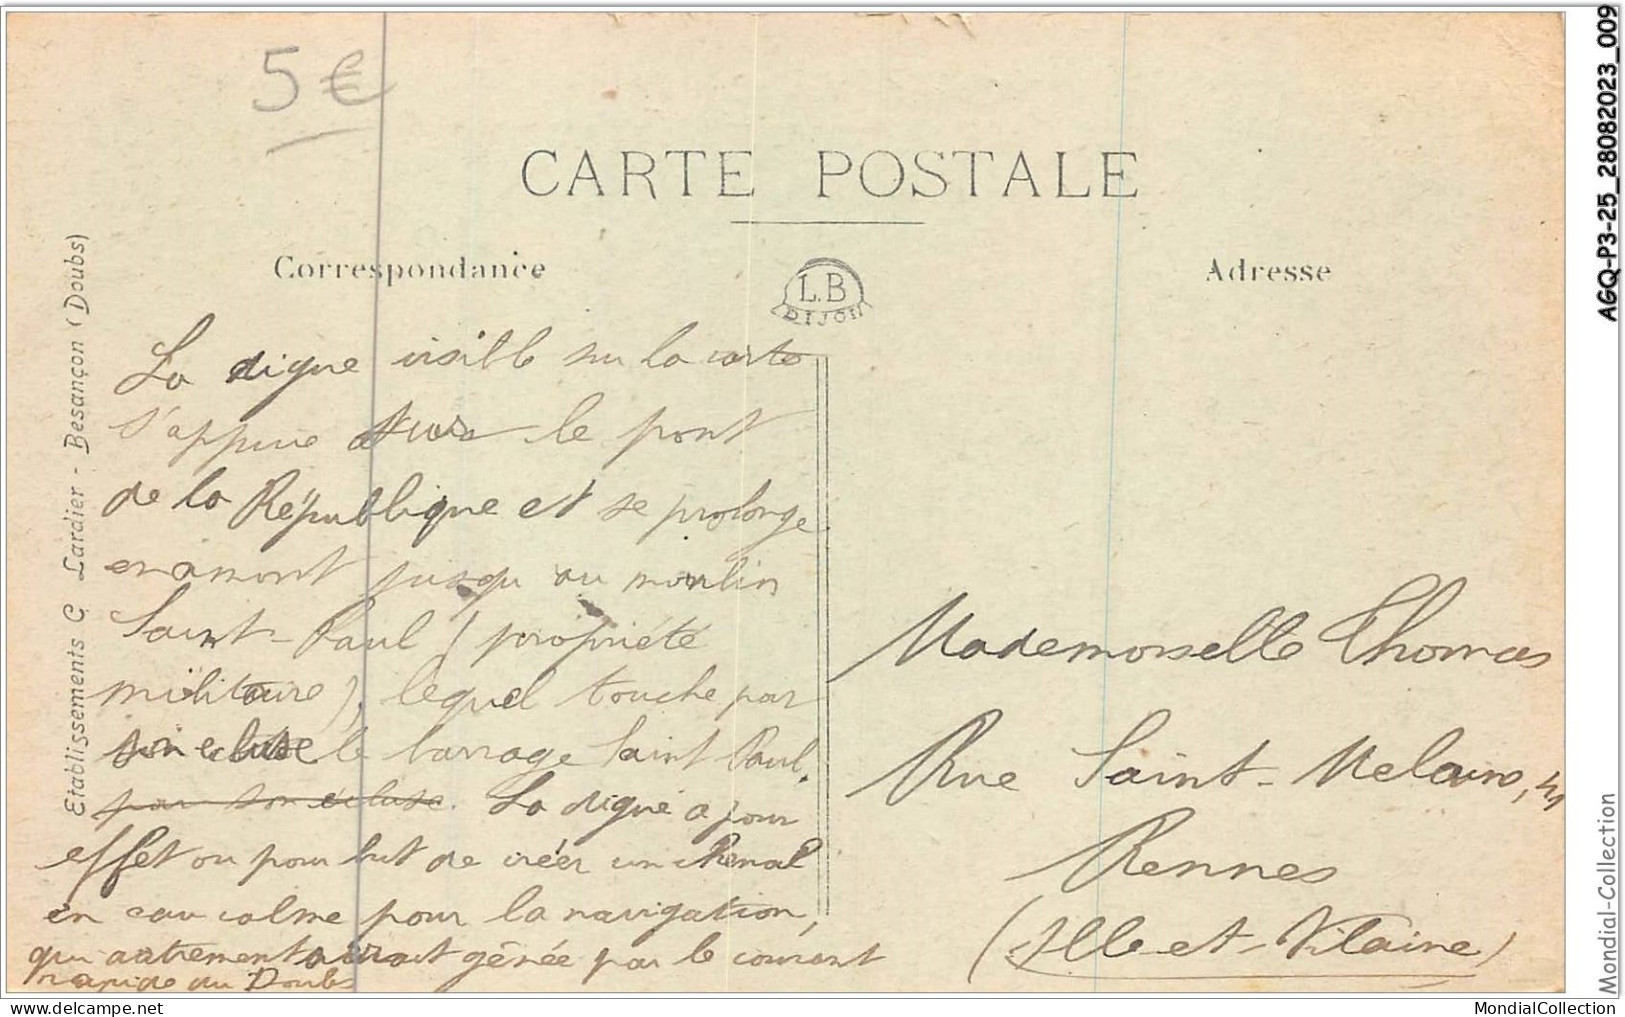 5 €
CARTE POSTALE
Correspondance
L.B
DIJON
Adresse
Etablissements C Lardier - Besançon (Doubs)
La digue visible sur la carte
s'appuie sur le pont
de la République et se prolonge
en amont jusqu'au moulin
Saint-Paul (propriété
militaire), lequel touche par
son écluse le barrage Saint Paul.
par son écluse. La digue a pour
effet ou pour but de créer un chenal
en eau calme pour la navigation,
qui autrement aurait gênée par le courant
rapide du Doubs
Mademoiselle Thomas
Rue Saint-Melaine,
Rennes
(Ille-et-Vilaine)
AGQ-P3-25_28082023_009
Mondial-Collection
MondialCollection